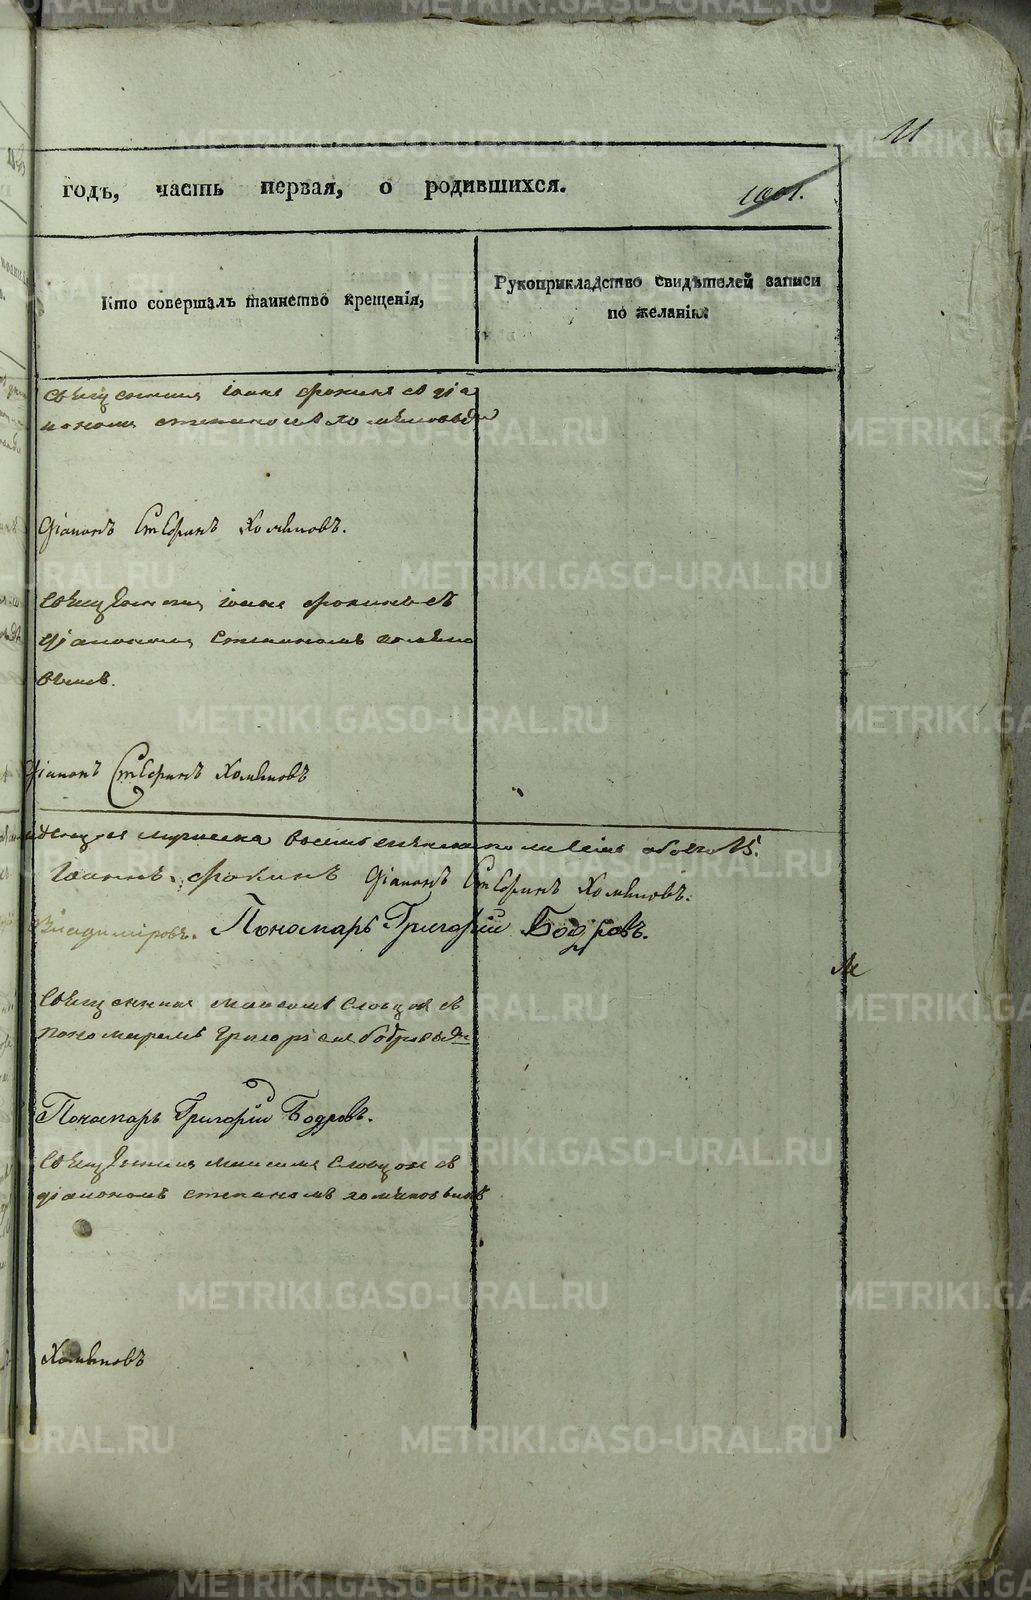 11
годъ, часть первая, о родившихся.
1001.
Кто совершалъ таинство крещенія,
Рукоприкладство свидѣтелей записи
по желанію:
священникъ Іоаннъ Фокинъ съ діа
кономъ Степаномъ Хомяковымъ
Діаконъ Стефанъ Хомяковъ.
Священникъ Іоаннъ Фокинъ съ
діакономъ Степаномъ Хомяко
вымъ.
Діаконъ Стефанъ Хомяковъ
мужеска женска обоего 15.
Іоаннъ Фокинъ Діаконъ Стефанъ Хомяковъ.
Владиміровъ. Пономарь Григорій Бодровъ.
Священникъ Словцовъ съ
пономаремъ Григоріемъ Бодровымъ
Пономарь Григорій Бодровъ.
Священникъ Словцовъ съ
діакономъ Степаномъ Хомяковымъ
Хомяковъ
METRIKI.GASO-URAL.RU